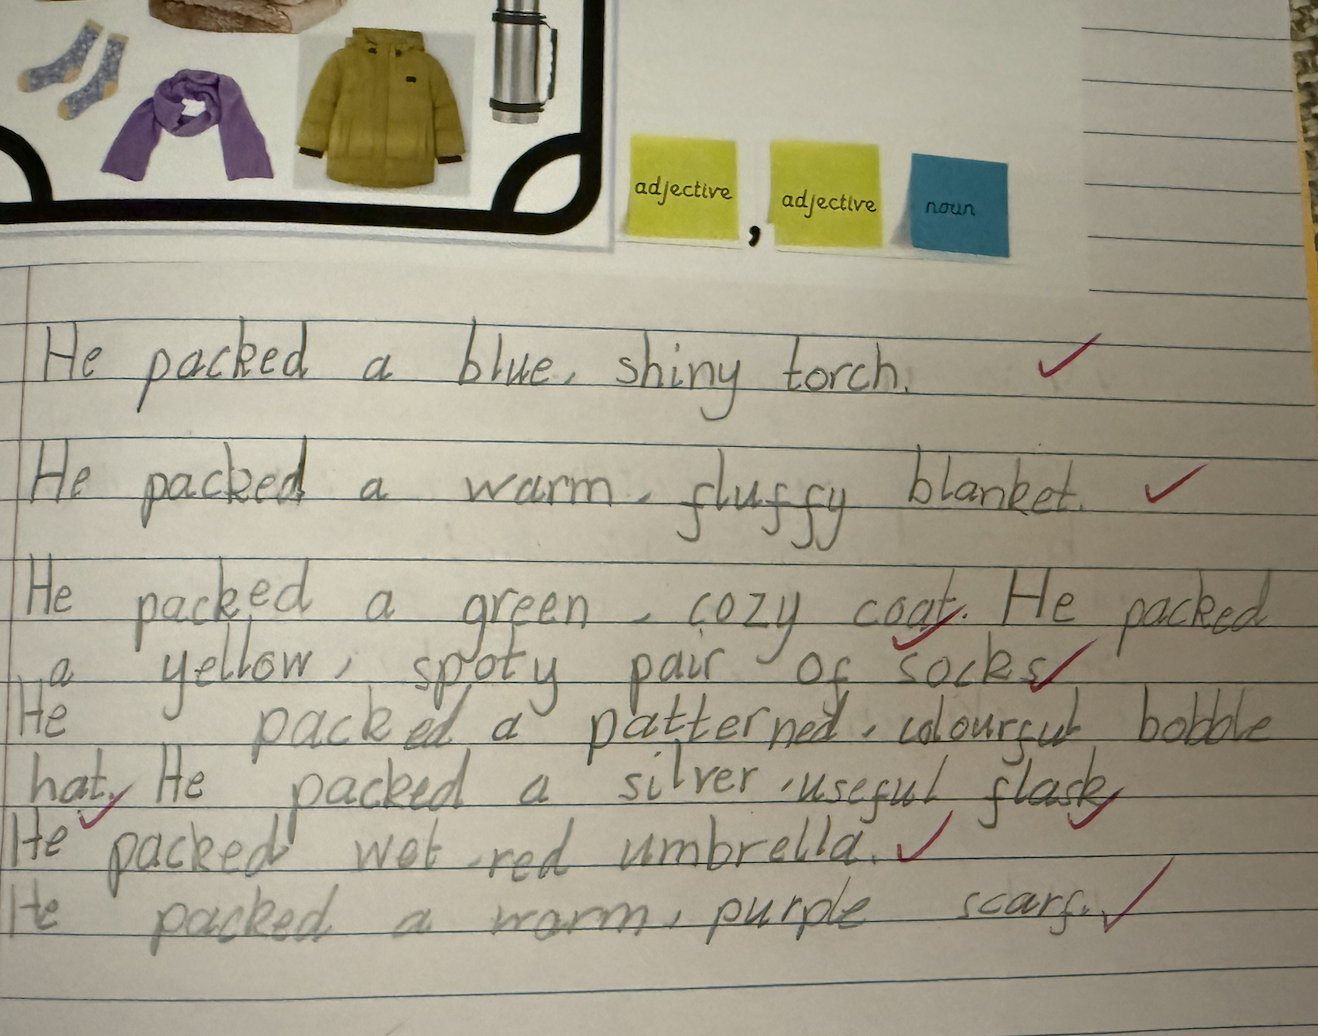 adjective , adjective noun
He packed a blue, shiny torch.
He packed a warm, fluffy blanket.
He packed a green, cozy coat. He packed
a yellow, spoty pair of socks
He packed a patterned, colourful bobble
hat. He packed a silver, useful flask
He packed wet, red umbrella.
He packed a warm, purple scarf.